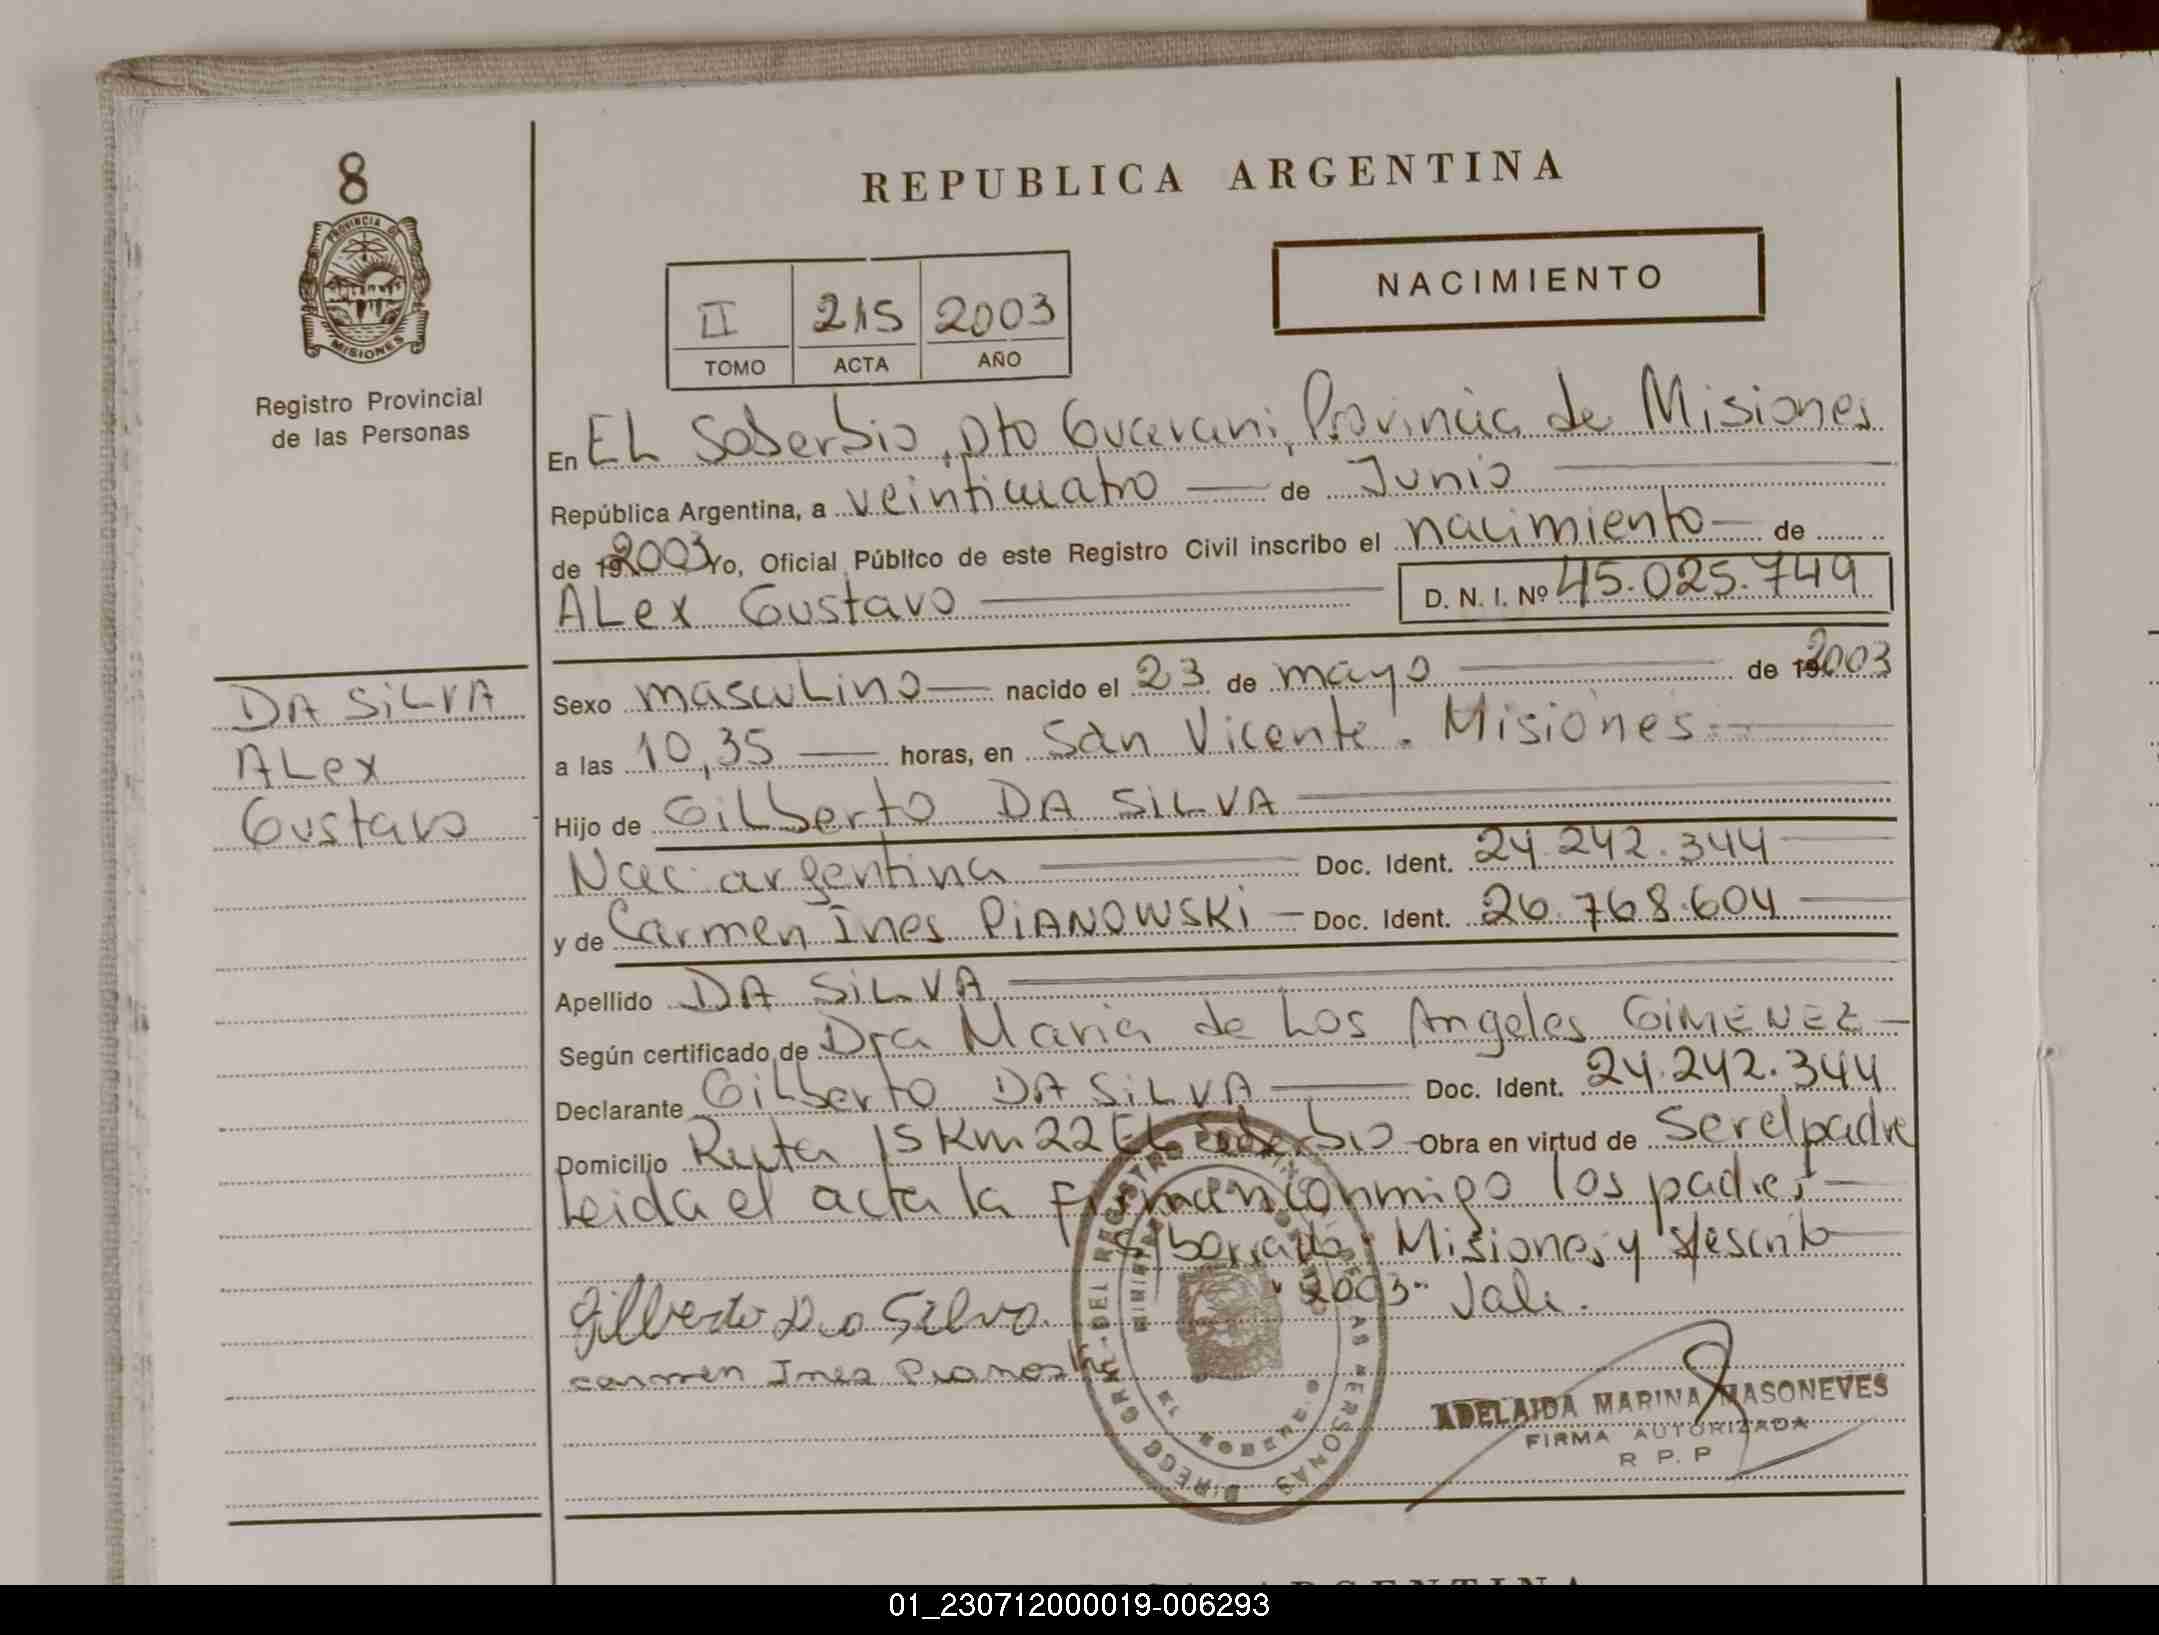 8
PROVINCIA DE
MISIONES
Registro Provincial
de las Personas
REPUBLICA ARGENTINA
NACIMIENTO
II 215 2003
TOMO ACTA AÑO
En EL Soberbio, Dto Guarani, Provincia de Misiones
República Argentina, a veinticuatro — de Junio
de 19 2003 Yo, Oficial Público de este Registro Civil inscribo el nacimiento — de
ALex Gustavo D. N. I. Nº 45.025.749
DA SiLVA
ALex
Gustavo
Sexo mascuLino — nacido el 23 de mayo de 19 2003
a las 10,35 — horas, en San Vicente. Misiones
Hijo de GiLberto DA SiLVA
Nac. argentina Doc. Ident. 24.242.344
y de Carmen Ines PiANOWSKi — Doc. Ident. 26.768.604
Apellido DA SiLVA
Según certificado de Dra Maria de Los Angeles GiMENEZ —
Declarante GiLberto DA SiLVA — Doc. Ident. 24.242.344
Domicilio Ruta 15 Km 22 EL Soberbio - Obra en virtud de Ser el padre
Leida el acta la firman conmigo los padres —
s/borrado: Misiones y s/escrito
"2003" Vale.
Gilberto Da Silva
Carmen Ines Pianoski
ADELAIDA MARINA MASONEVES
FIRMA AUTORIZADA
R P. P
ARGENTINA
01_230712000019-006293